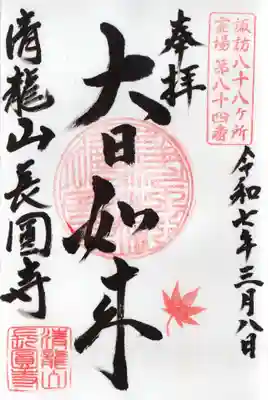 諏訪八十八ケ所
霊場第八十四番
奉拝
令和七年三月八日
大日如来
清龍山長圓寺
清龍山
長圓寺